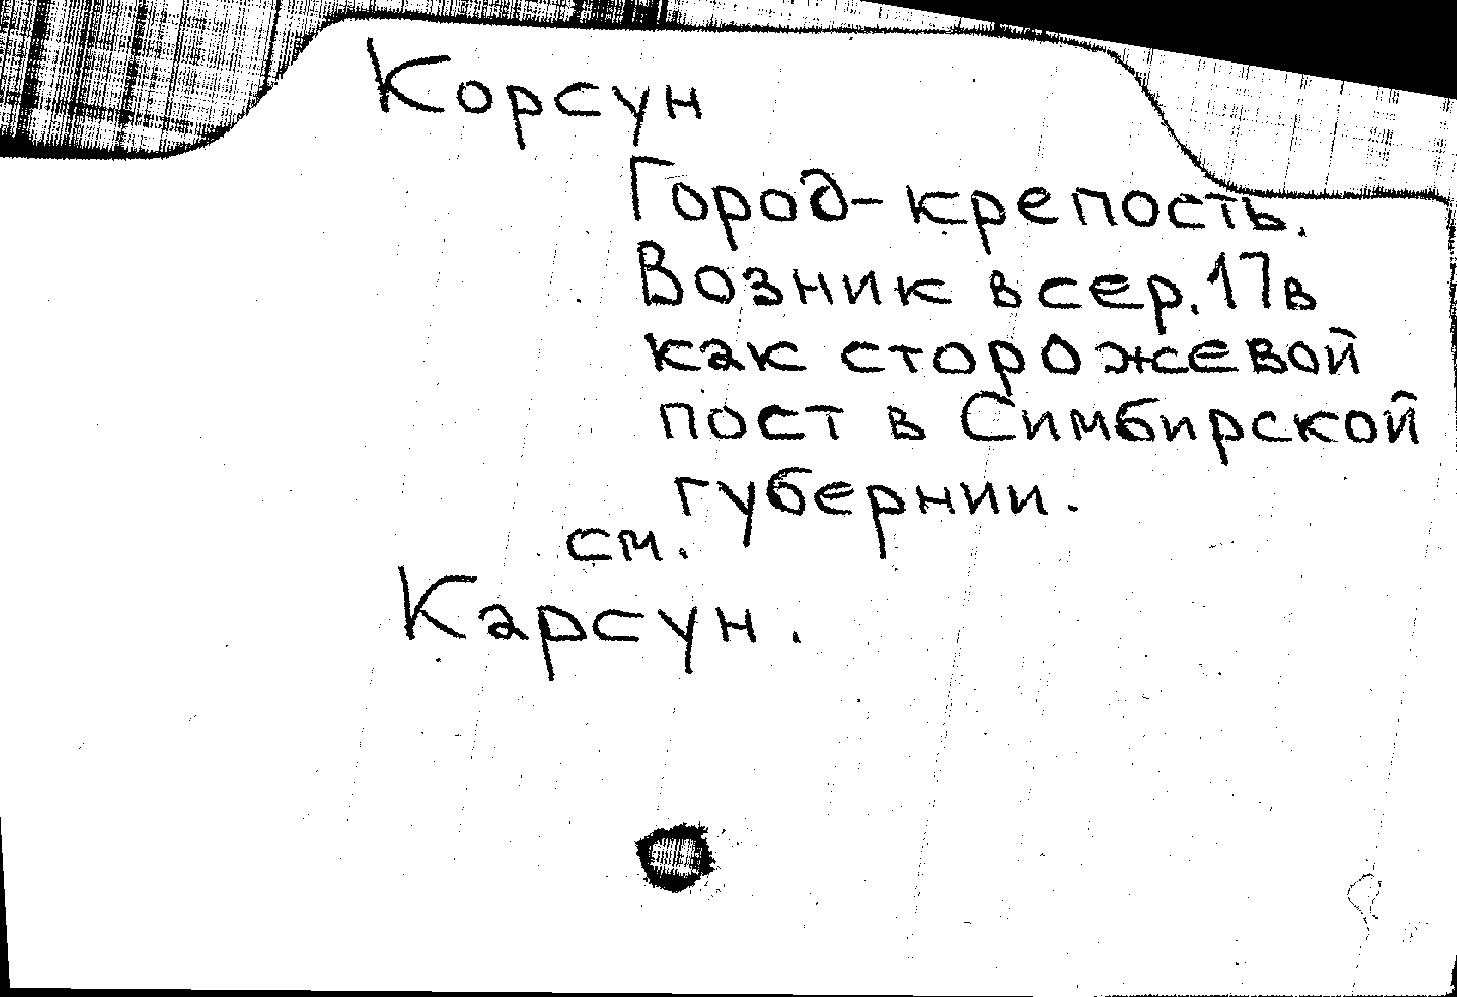 Корсун
Город-крепость.
Возник в сер. 17 в
как сторожевой
пост в Симбирской
губернии.
см.
Карсун.